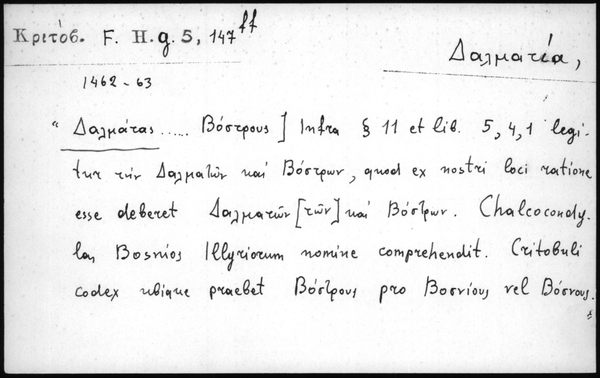 Κριτόβ. F. H. g. 5, 147 ff
Δαλματία,
1462-63
“Δαλμάτας ..... Βόστρους] Infra § 11 et lib. 5, 4, 1 legi-
tur τὴν Δαλματῶν καί Βόστρων, quod ex nostri loci ratione
esse deberet Δαλματῶν [τῶν] καί Βόστρων. Chalcocondy-
las Bosnios Illyriorum nomine comprehendit. Critobuli
codex ubique praebet Βόστρους pro Βοσνίους vel Βόσνους.”